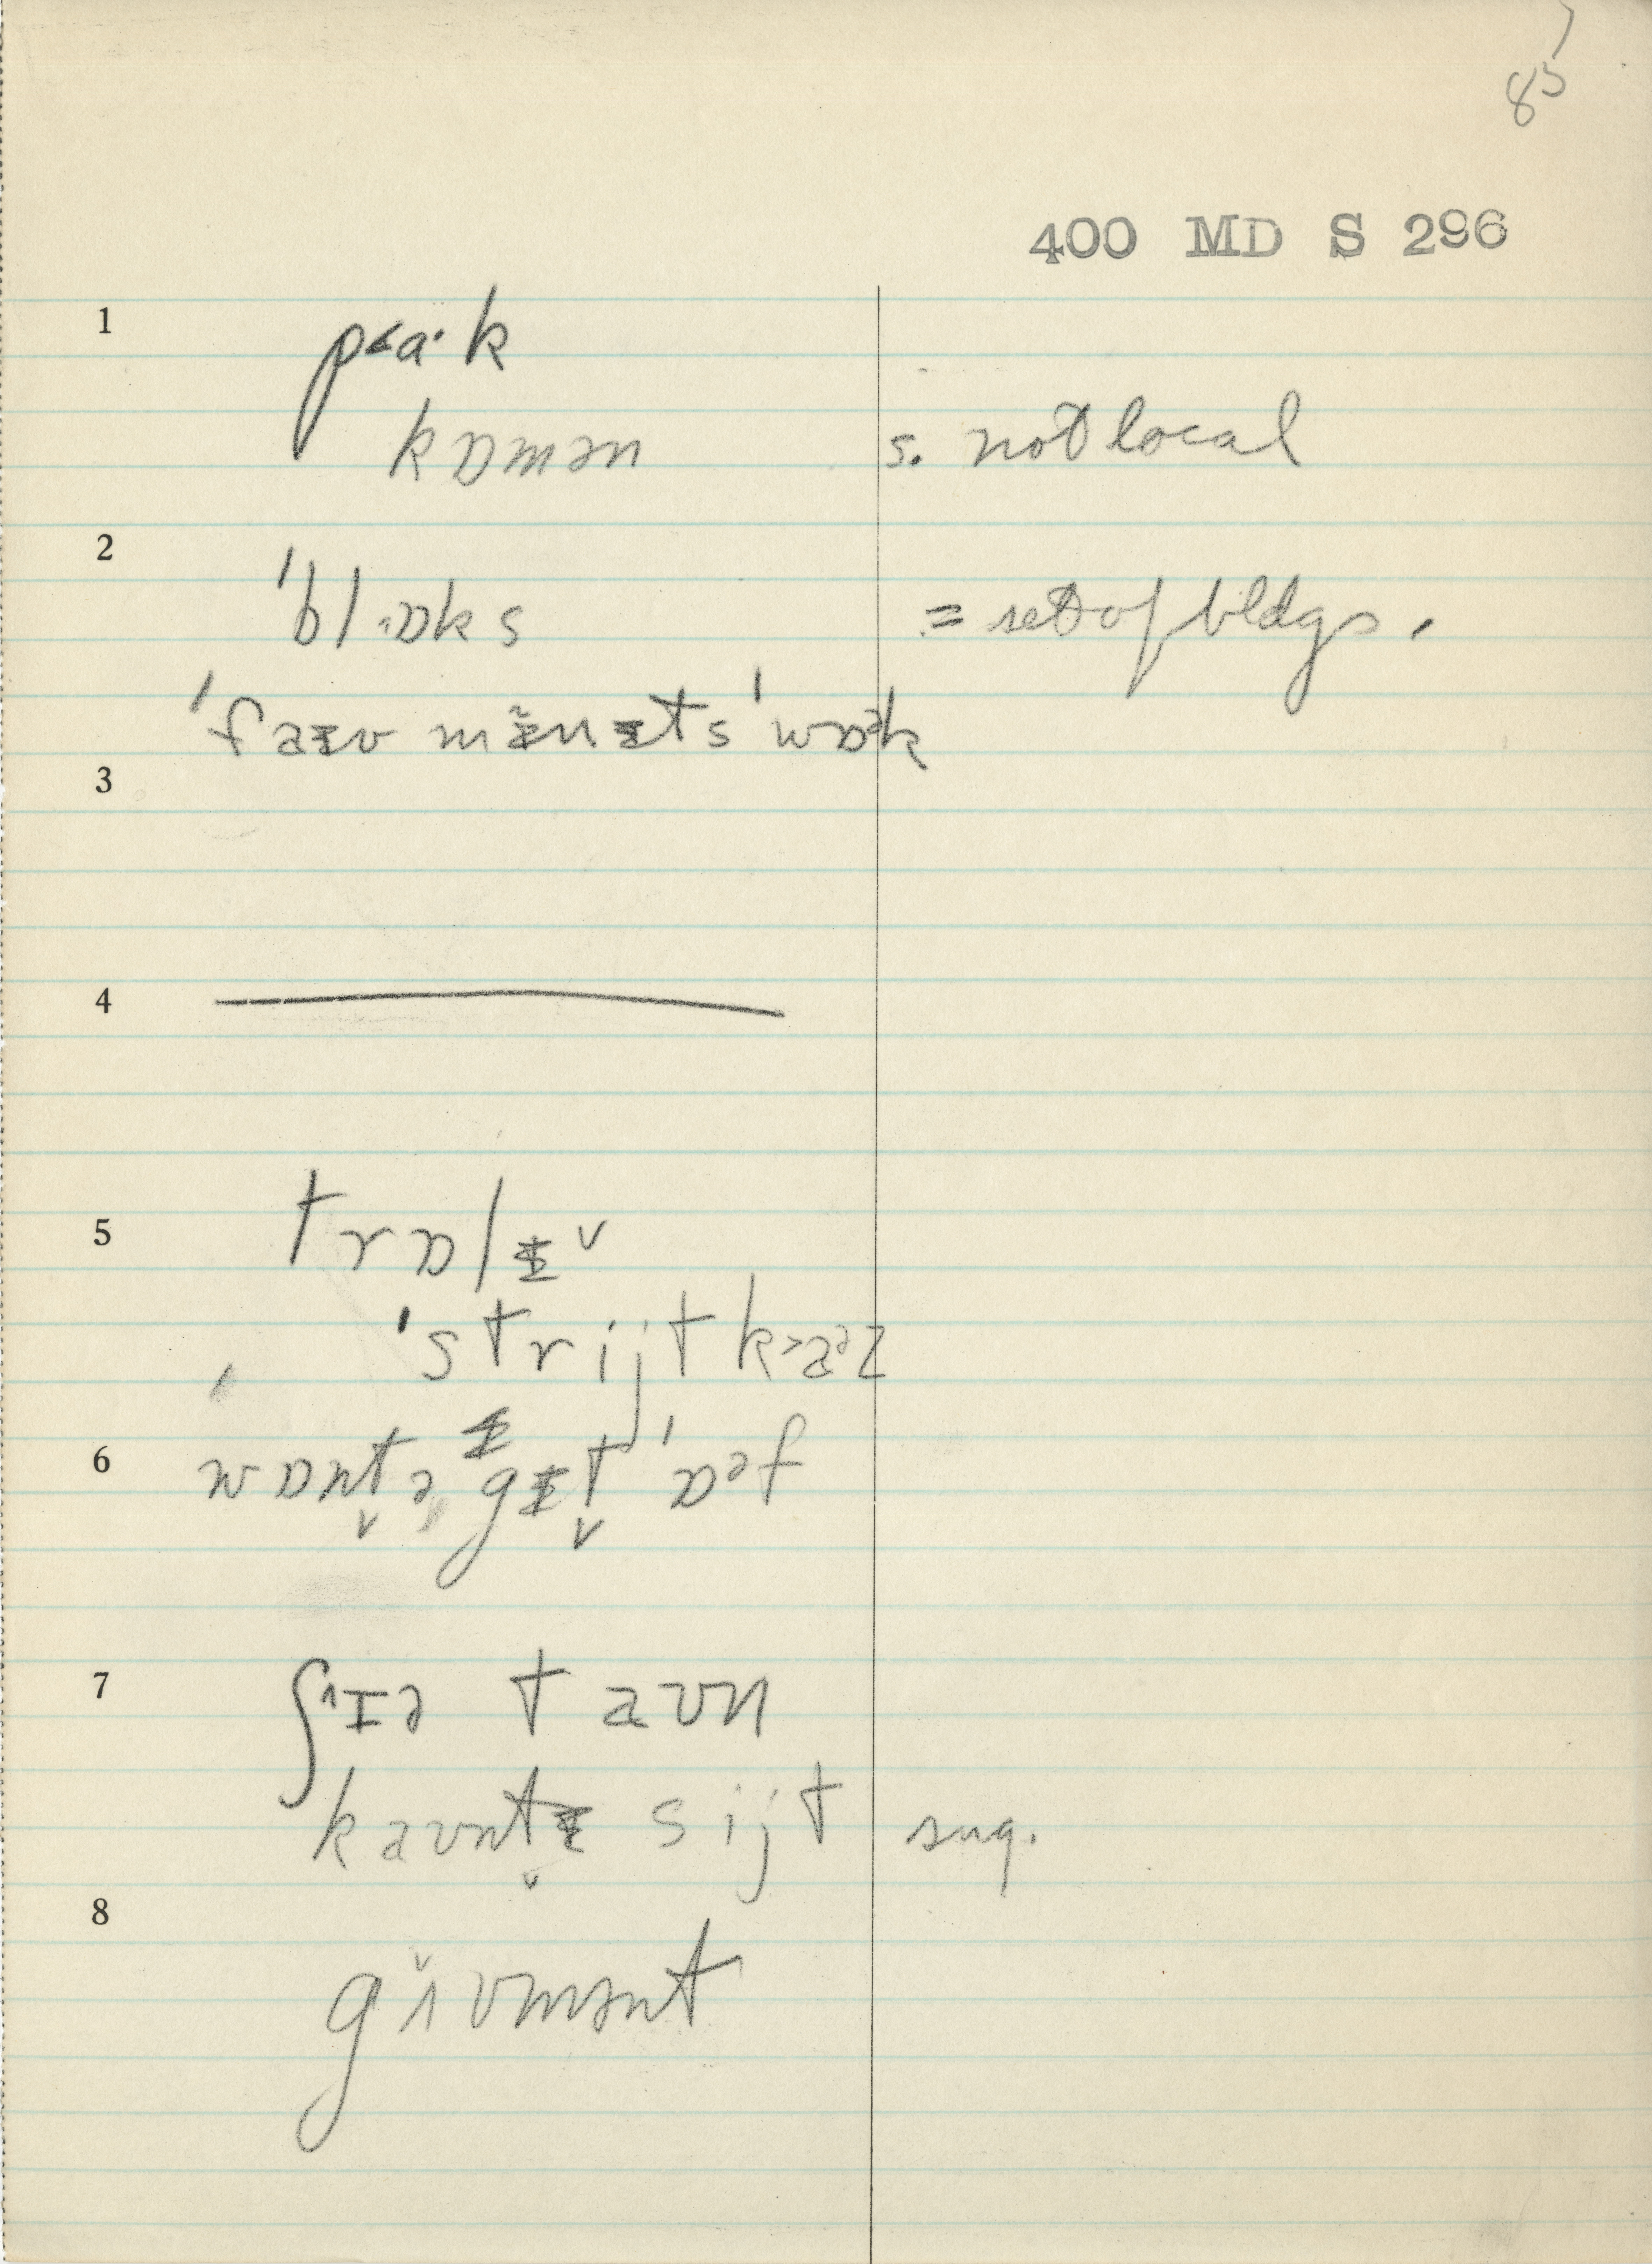 85
400 MD S 296
1 p<a·k
kɒmən s. not local
2 ˈblɒks = set of bldgs.
ˈfaɪv mɨ̆nɨts ˈwɒək
3
4
5 trɒlɨ ˅
ˈstrijt k>aəz
6 wɒnt̬ə gɨt̬ ˈɒəf
7 ʃ^ɪə taʊn
kaʊnt̬ɨ sijt sug.
8 gʌ̌vmənt